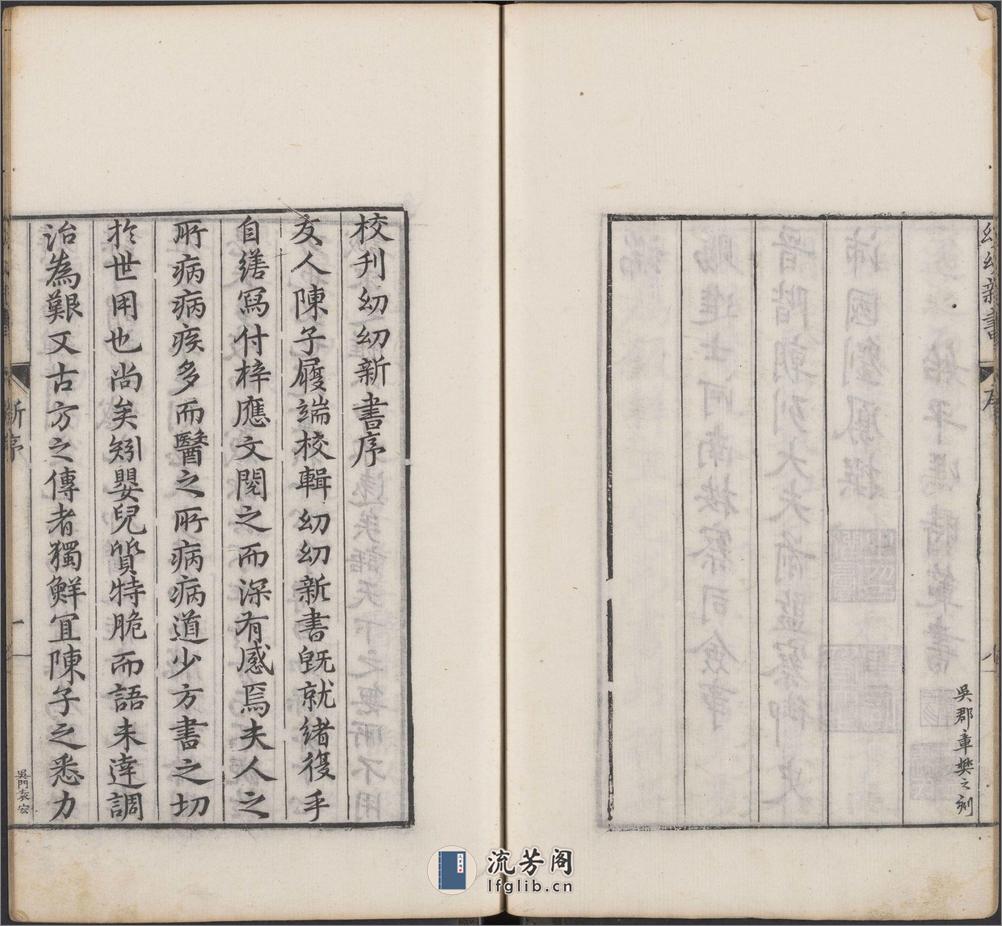 幼幼新書
序
八
吳郡章樊之刻
校刊幼幼新書序
友人陳子履端校輯幼幼新書旣就緒復手
自繕寫付梓應文閱之而深有感焉夫人之
所病病疾多而醫之所病病道少方書之切
於世用也尚矣矧嬰兒質特脆而語未達調
治為艱又古方之傳者獨鮮宜陳子之悉力
新序
一
吳門袁安
流芳阁
lfglib.cn